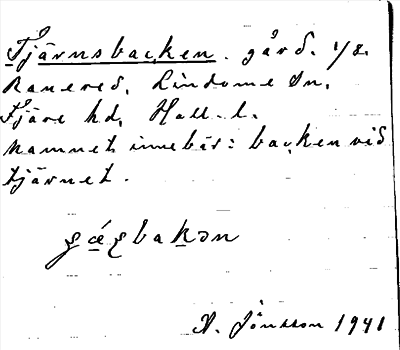 Tjärnsbacken. gård. 1/8.
Ranered, Lindome sn,
Fjäre hd, Hall. l.
namnet innebär: backen vid
tjärnet.
bakən
A. Jönsson 1941